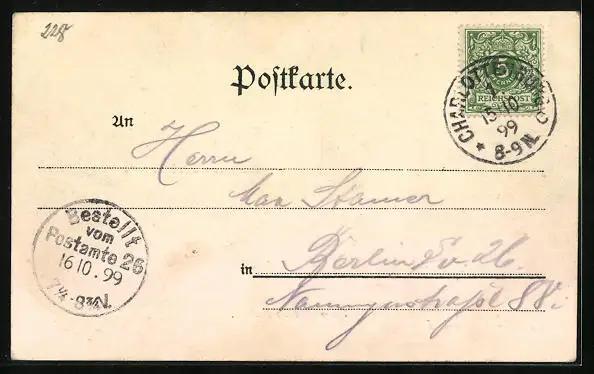 228
Postkarte.
5
REICHSPOST
CHARLOTTENBURG
1
15 10
99
* 8-9 N.
An
Herrn
Max
Bestellt
vom
Postamte 26
16 10. 99
7¼-8¾N.
in Berlin S.O. 26.
Naunynstraße 88